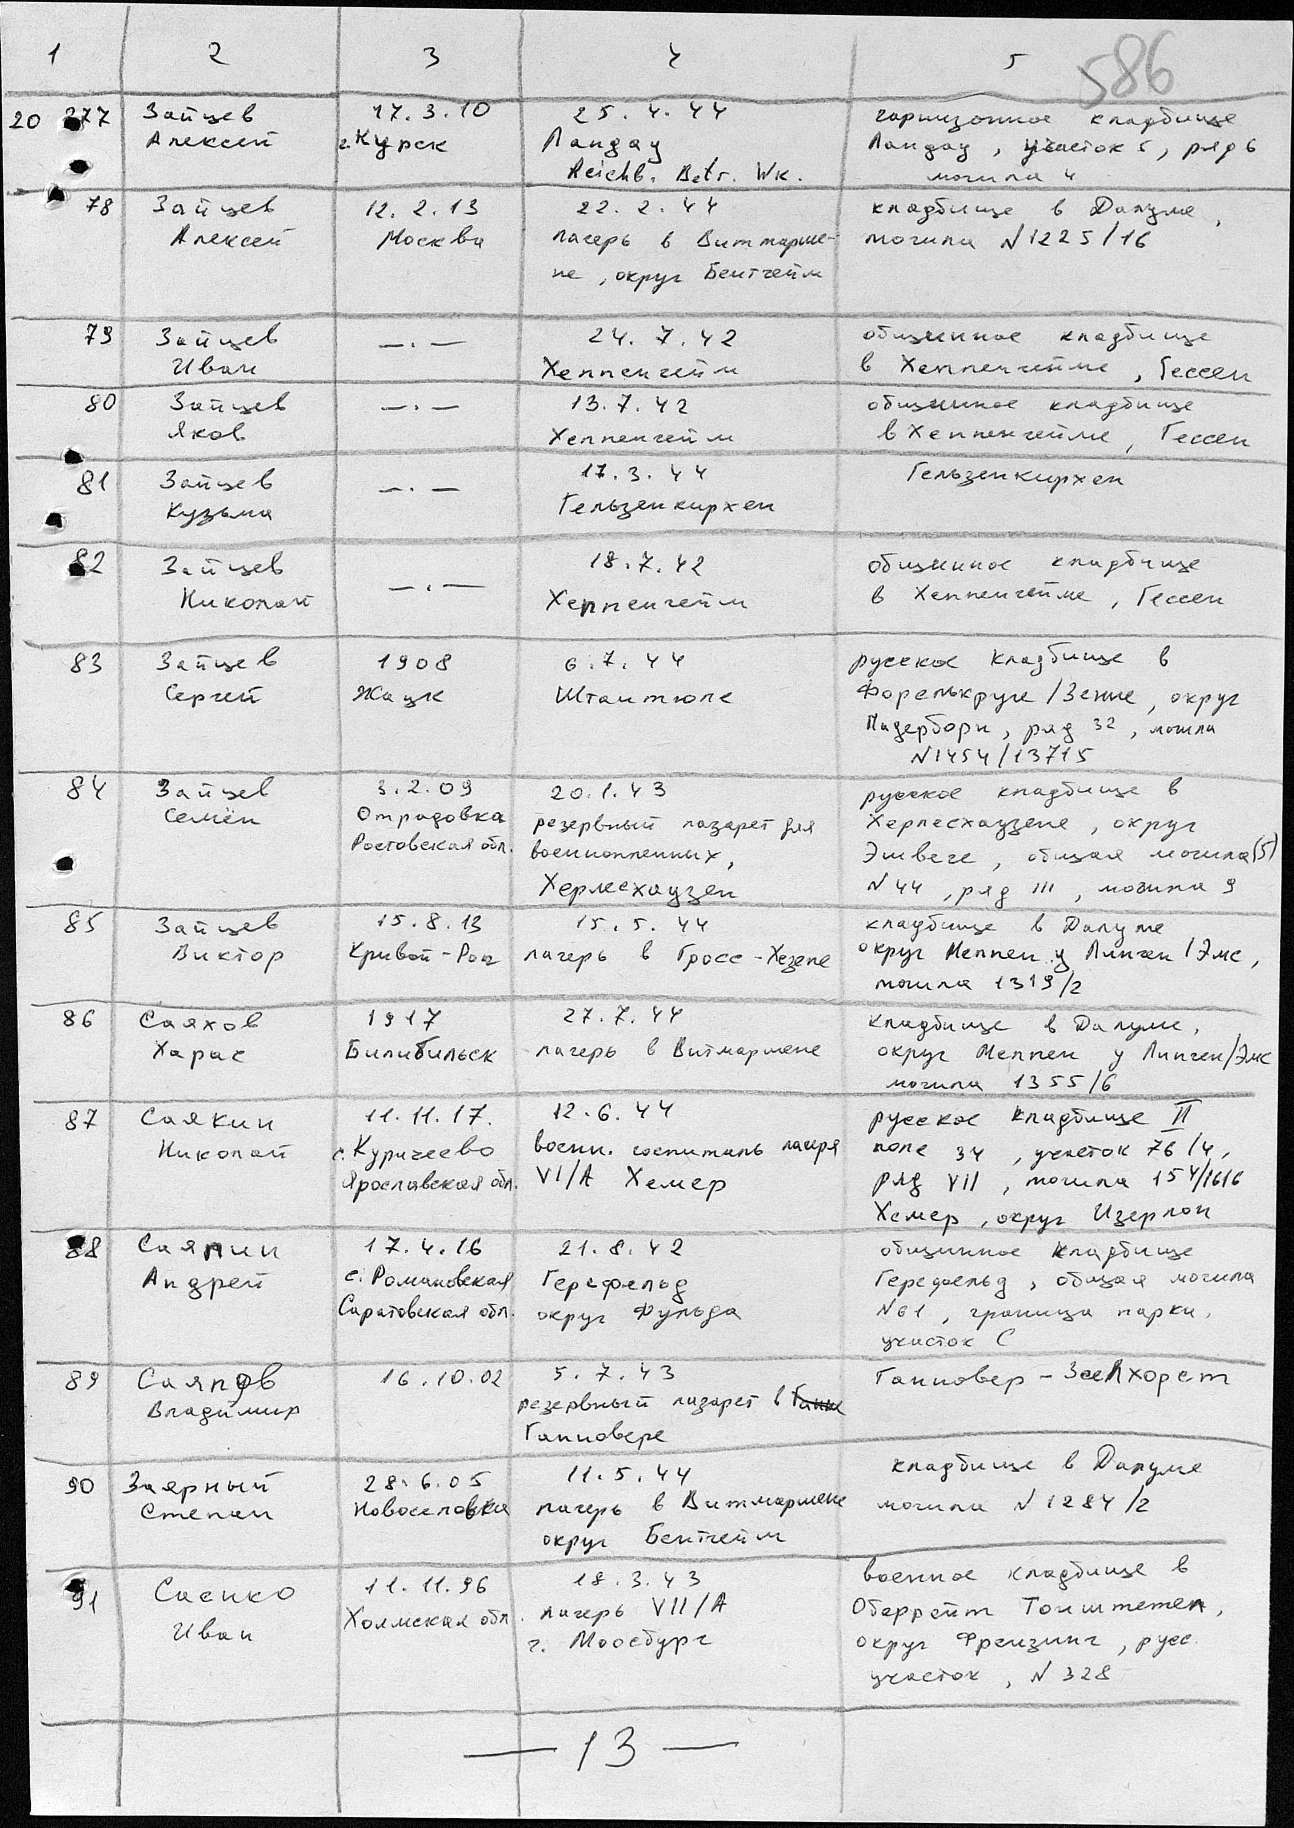 586
1 2 3 4 5
20 277 Зайцев 17.3.10 25.4.44 гарнизонное кладбище
Алексей г. Курск Ландау Ландау, участок 5, ряд 6
Reichb. Betr. Wk. могила 4
78 Зайцев 12.2.13 22.2.44 кладбище в Далуме,
Алексей Москва лагерь в Витмарше- могила N 1225/16
не, округ Бентгейм
79 Зайцев —.— 24.7.42 общинное кладбище
Иван Хеппенгейм в Хеппенгейме, Гессен
80 Зайцев —.— 13.7.42 общинное кладбище
Яков Хеппенгейм в Хеппенгейме, Гессен
81 Зайцев —.— 17.3.44 Гельзенкирхен
Кузьма Гельзенкирхен
82 Зайцев —.— 18.7.42 общинное кладбище
Николай Хеппенгейм в Хеппенгейме, Гессен
83 Зайцев 1908 6.7.44 русское кладбище в
Сергей Жацк Штантюле Форелькруге/Зенне, округ
Падерборн, ряд 32, могила
N 1454/13715
84 Зайцев 3.2.09 20.1.43 русское кладбище в
Семён Отрадовка резервный лазарет для Херлесхаузене, округ
Ростовская обл. военнопленных, Эшвеге, общая могила (5)
Херлесхаузен N 44, ряд III, могила 9
85 Зайцев 15.8.13 15.5.44 кладбище в Далуме
Виктор Кривой-Рог лагерь в Гросс-Хезепе округ Меппен у Линген/Эмс,
могила 1319/2
86 Саяхов 1917 27.7.44 кладбище в Далуме,
Харас Билибильск лагерь в Витмаршене округ Меппен у Линген/Эмс
могила 1355/6
87 Саякин 11.11.17. 12.6.44 русское кладбище II
Николай с. Куричеево воен. госпиталь лагеря поле 34, участок 76/4,
Ярославская обл. VI/A Хемер ряд VII, могила 154/1616
Хемер, округ Изерлон
88 Саяпин 17.4.16 21.8.42 общинное кладбище
Андрей с. Романовская Герсфельд Герсфельд, общая могила
Саратовская обл. округ Фульда N 61, граница парка,
участок С
89 Саяпов 16.10.02 5.7.43 Ганновер - Зеелхорст
Владимир резервный лазарет в
Ганновере
90 Заярный 28.6.05 11.5.44 кладбище в Далуме
Степан Новоселовка лагерь в Витмаршене могила N 1284/2
округ Бентгейм
91 Саенко 11.11.96 18.3.43 военное кладбище в
Иван Холмская обл. лагерь VII/A Оберрейт Тонштетен,
г. Моосбург округ Фрейзинг, русс.
участок, N 328
— 13 —